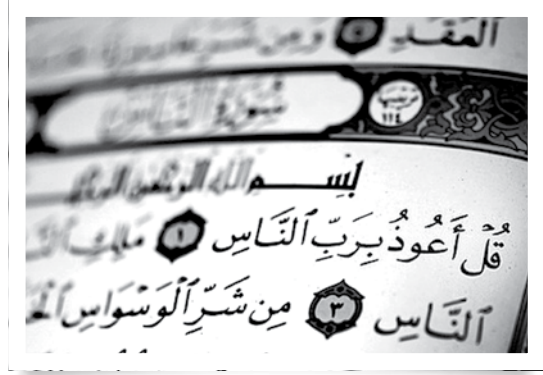 ٱلۡعُقَدِ ٤ وَمِن شَرِّ
سُورَةُ النَّاسِ ترتيبها ١١٤
بِسۡمِ ٱللَّهِ ٱلرَّحۡمَٰنِ ٱلرَّحِيمِ
قُلۡ أَعُوذُ بِرَبِّ ٱلنَّاسِ ١ مَلِكِ
ٱلنَّاسِ ٣ مِن شَرِّ ٱلۡوَسۡوَاسِ